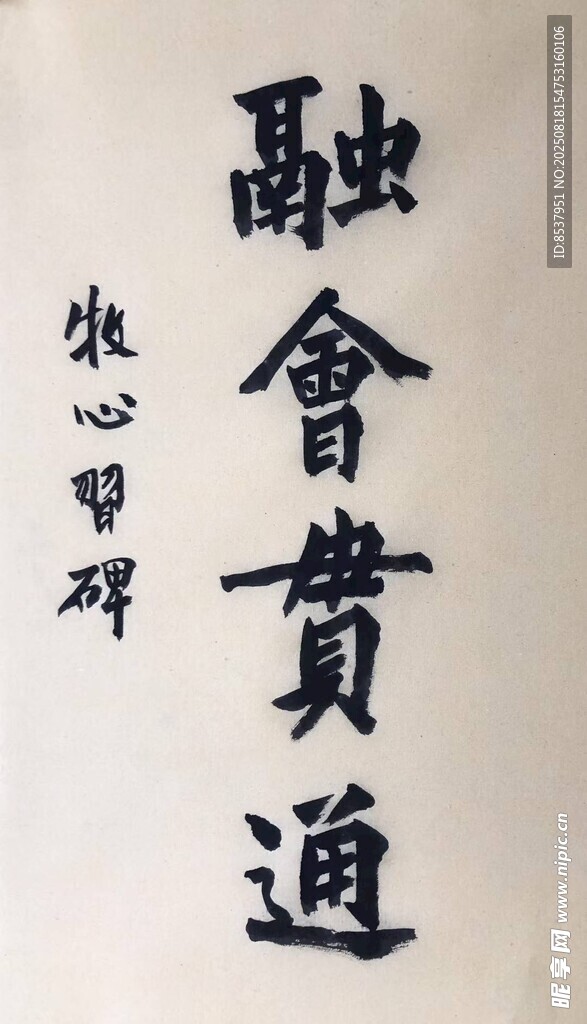 融會貫通
牧心習碑
ID:8537951 NO:20250818154753160106
昵享网 www.nipic.cn